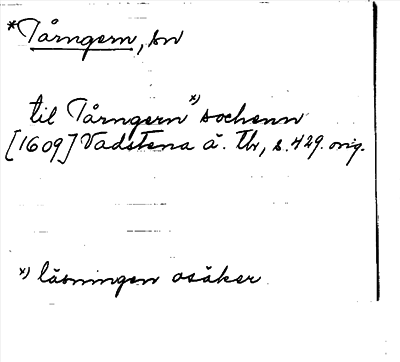 *Tårngern, sn
til Tårngern x) sochenn
[1609] Vadstena ä. Tb, s. 429. orig.
x) läsningen osäker.